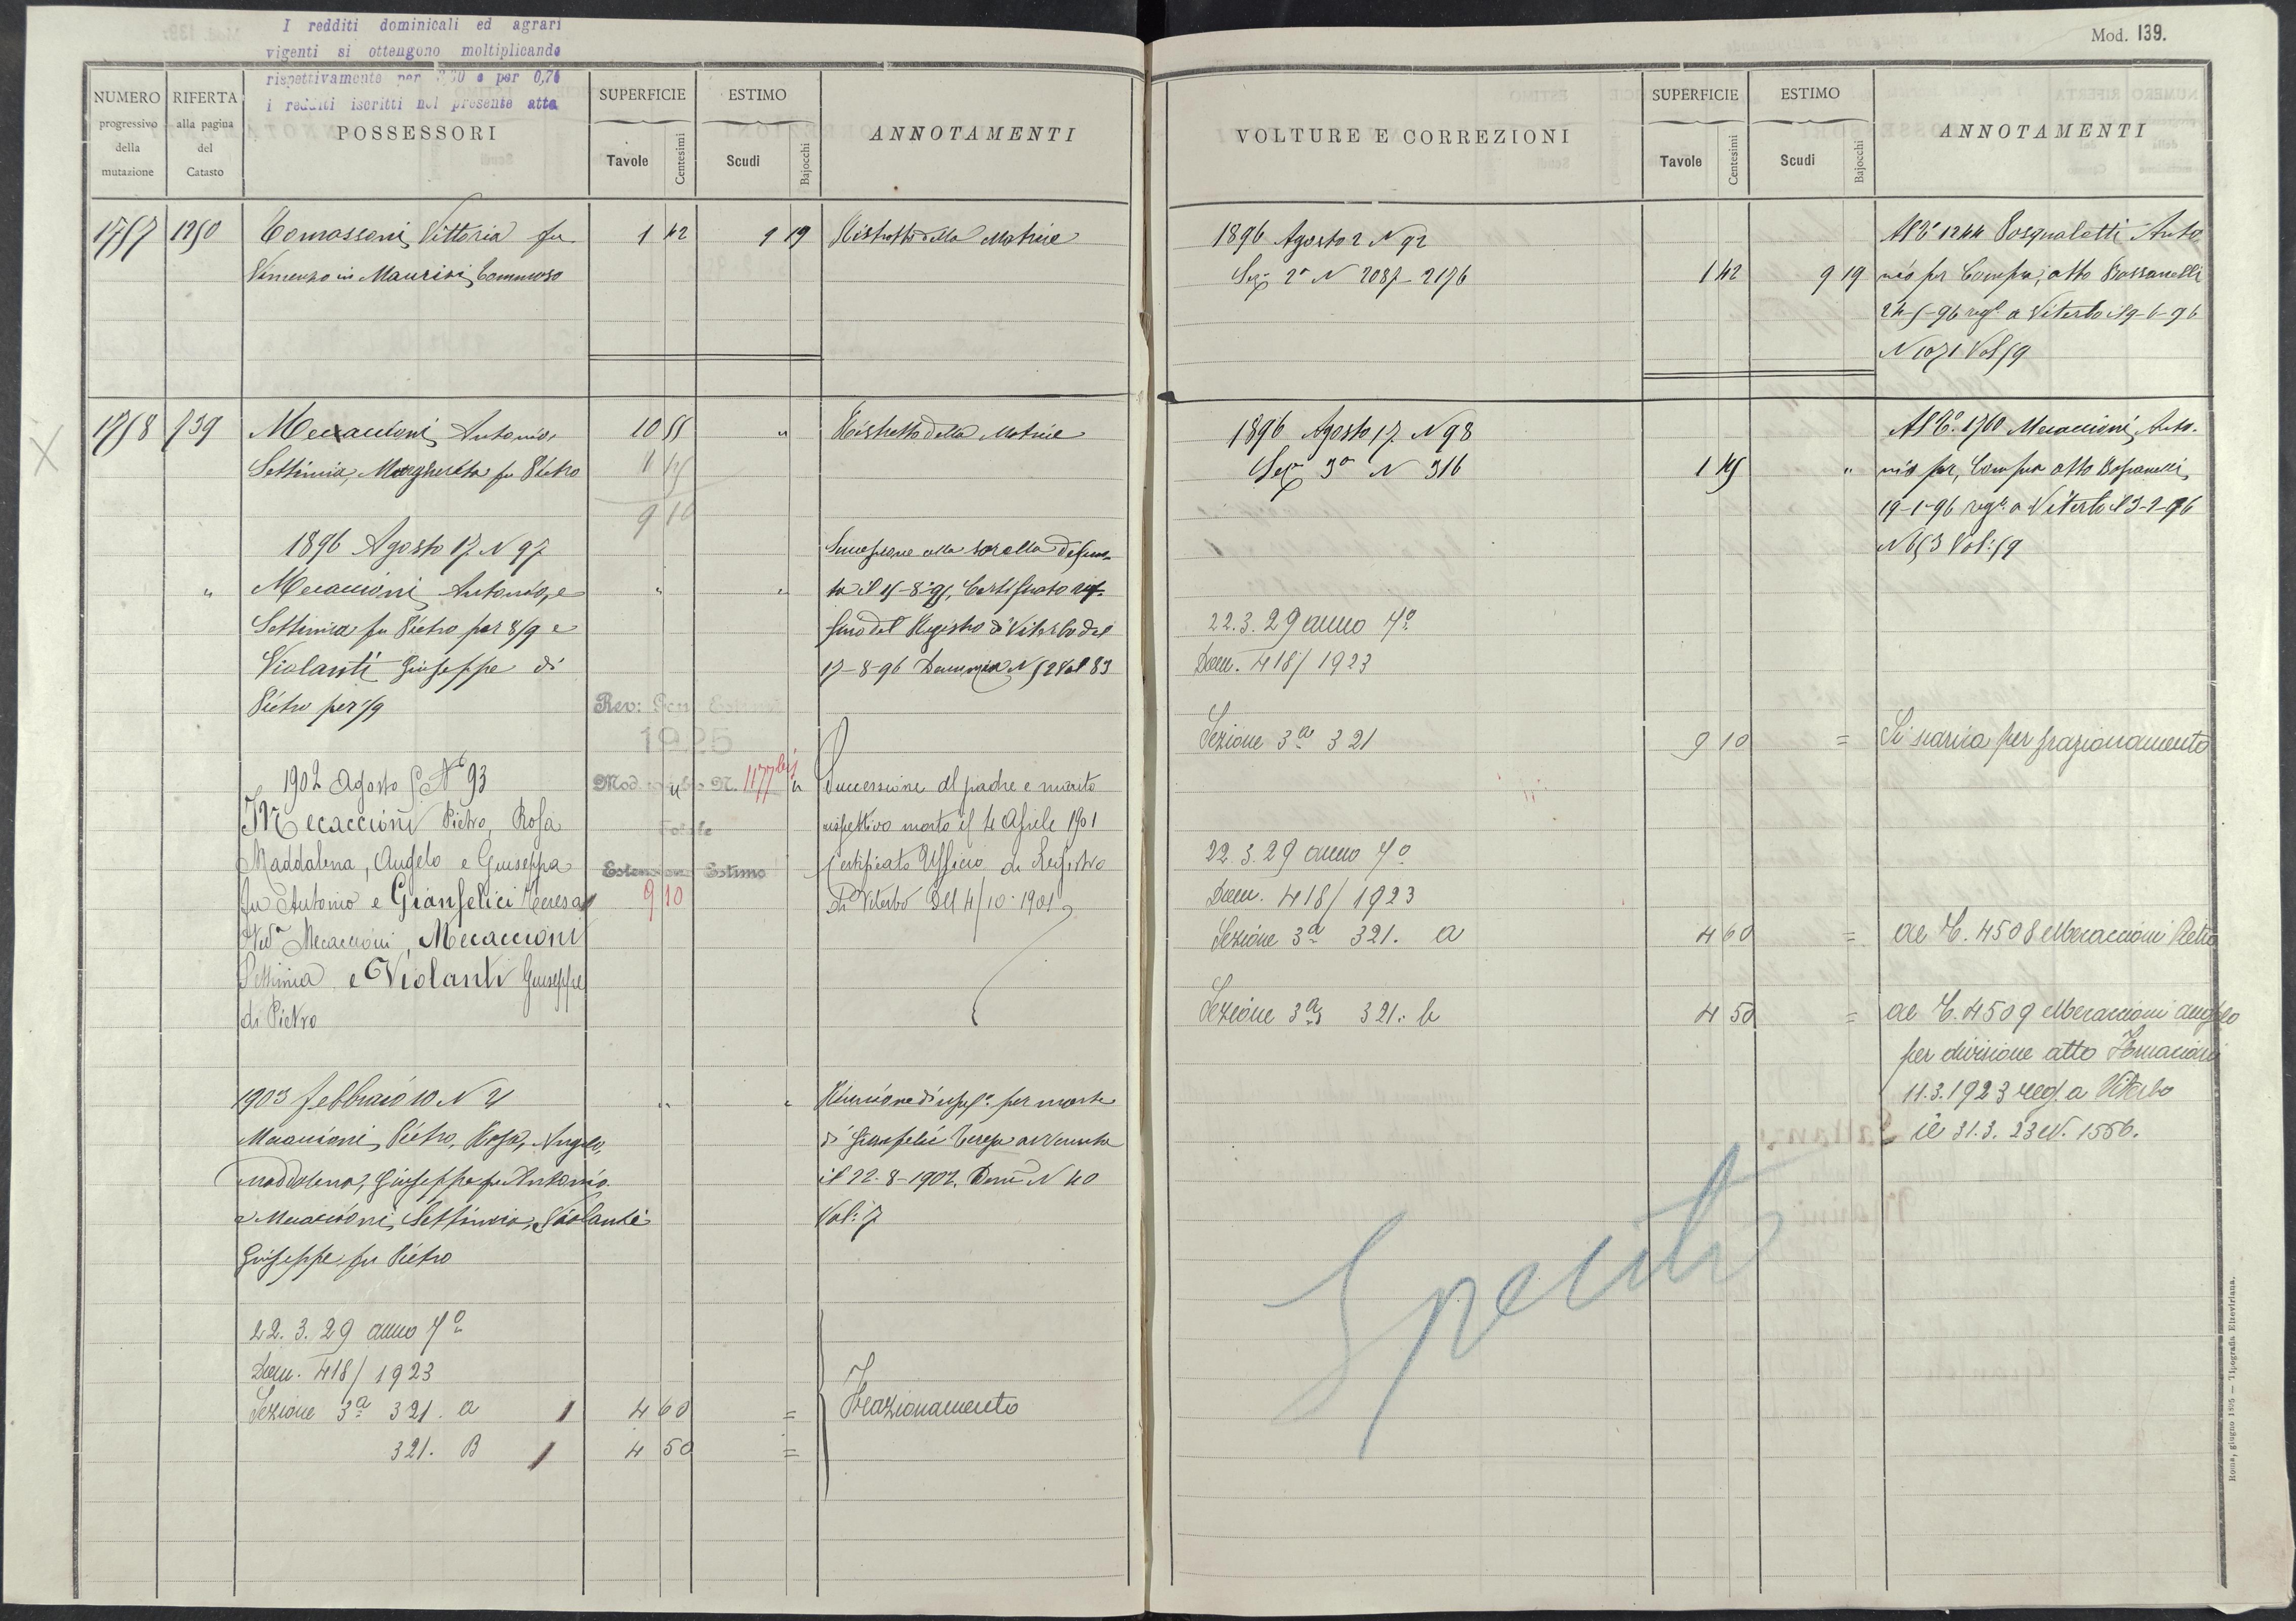 I redditi dominicali ed agrari
vigenti si ottengono moltiplicando
rispettivamente per e per 0,76
i redditi iscritti nel presente atto
Mod. 139.
NUMERO progressivo della mutazione
RIFERTA alla pagina del Catasto
POSSESSORI
SUPERFICIE
Tavole Centesimi
ESTIMO
Scudi Bajocchi
ANNOTAMENTI
1757 1250 Tomassoni Vittoria fu 1 42 9 19 Ristretto della Matrice
Vincenzo in Maurizi Tommaso
1758 739 Mecaccioni Antonio, 10 55 " Ristretto della Matrice
Settimia, Margherita fu Pietro 1 45
9 10
1896 Agosto 17 N 97 Successione alla sorella defun-
" Mecaccioni Antonio, e " " ta il Certificato
Settimia fu Pietro per 8/9 e del Registro di Viterbo del
Violanti Giuseppe di 17-8-96 Denunzia N 52 Vol 83
Pietro per 1/9
Rev: Gen Estimi
1925
Mod. N. 1177 bis
Totale
Estensione Estimo
9 10
1902 Agosto 5 N° 93
Mecaccioni Pietro, Rosa
Maddalena, Angelo e Giuseppa
fu Antonio e Gianfelici Teresa
Ved.a Mecaccioni, Mecaccioni
Settimia e Violanti Giuseppe
di Pietro
" " Successione al padre e marito
rispettivo morto il 4 Aprile 1901
Certificato Ufficio di Registro
di Viterbo Del 4/10-1901
1903 febbraio 10 N 21 " " Riunione d'usuf.o per morte
Mecaccioni Pietro, Rosa, Angelo, di Gianfelici Teresa avvenuta
Maddalena, Giuseppa fu Antonio il 22-8-1902. Den N 40
e Mecaccioni Settimia, e Violanti Vol: 7
Giuseppe fu Pietro
22.3.29 anno 7°
Dom. 418/1923
Sezione 3a 321. a 4 60 = Frazionamento
321. B 4 50 =
VOLTURE E CORREZIONI
SUPERFICIE
Tavole Centesimi
ESTIMO
Scudi Bajocchi
ANNOTAMENTI
1896 Agosto 2 N 92 Al C° 1244 Pasqualetti Anto
Sez. 2a N 2087-2176 1 42 9 19 nio per Compra, atto Bassanelli
24-5-96 reg.o a Viterbo il 9-6-96
N 1071 Vol 59
1896 Agosto 17 N 98 Al C°. 1760 Mecaccioni Anto-
Sez. 3a N 316 1 45 " nio per Compra atto Bassanelli
19-1-96 reg.o a Viterbo il 3-2-96
N 653 Vol: 59
22.3.29 anno 7°
Dom. 418/1923
Sezione 3a 321 9 10 = Si scarica per frazionamento
22.3.29 anno 7°
Dom. 418/1923
Sezione 3a 321. a 4 60 = al C. 4508 Mecaccioni Pietro
Sezione 3a 321. b 4 50 = al C. 4509 Mecaccioni Angelo
per divisione atto
11.3.1923 reg. a Viterbo
il 31.3.23 N. 1556.
Spento
Roma, giugno 1895 — Tipografia Elzeviriana.